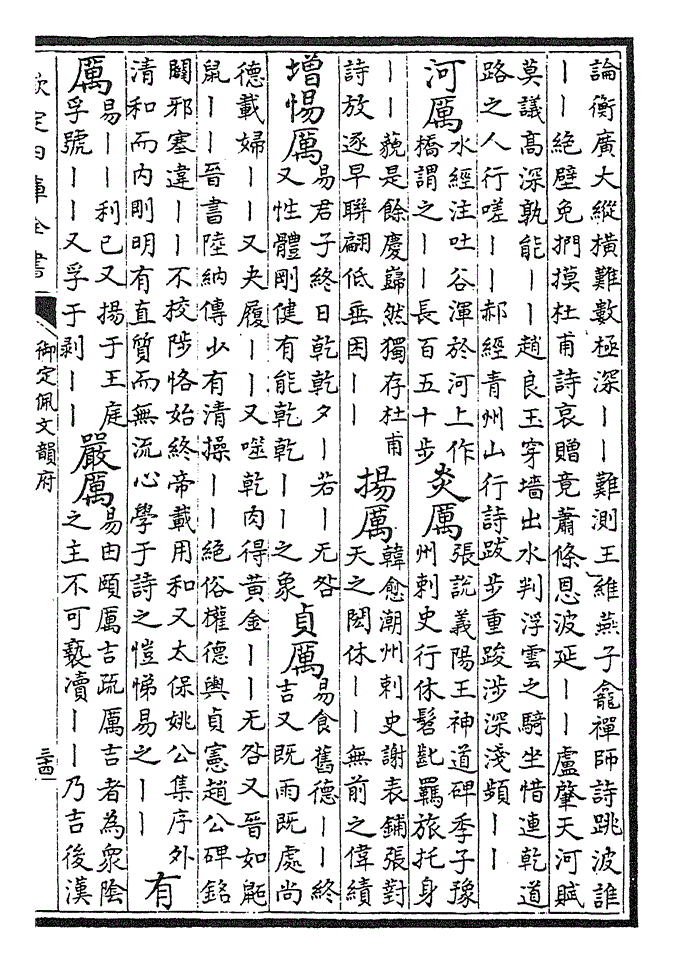 論衡廣大縱橫難數極深丨丨難測王維燕子龕禪師詩跳波誰
丨丨絕壁免捫摸杜甫詩哀贈竟蕭條恩波延丨丨盧肇天河賦
莫議高深孰能丨丨趙良玉穿墻出水判浮雲之騎坐惜連乾道
路之人行嗟丨丨郝經青州山行詩跋步重踆涉深淺頻丨丨
河厲
水經注吐谷渾於河上作
橋謂之丨丨長百五十步
炎厲
張說義陽王神道碑季子豫
州刺史行休髫齔羈旅托身
丨丨藐是餘慶巋然獨存杜甫
詩放逐早聯翩低垂困丨丨
揚厲
韓愈潮州刺史謝表鋪張對
天之閎休丨丨無前之偉績
增惕厲
易君子終日乾乾夕丨若丨无咎
又性體剛健有能乾乾丨丨之象
貞厲
易食舊德丨丨終
吉又既雨既處尚
德載婦丨丨又夬履丨丨又噬乾肉得黃金丨丨无咎又晉如鼫
鼠丨丨晉書陸納傳少有清操丨丨絕俗權德輿貞憲趙公碑銘
閑邪塞違丨丨不校陟恪始終帝載用和又太保姚公集序外
清和而内剛明有直質而無流心學于詩之愷悌易之丨丨
有厲
易丨丨利已又揚于王庭
孚號丨丨又孚于剥丨丨
嚴厲
易由頤厲吉疏厲吉者為衆陰
之主不可褻瀆丨丨乃吉後漢
欽定四庫全書
御定佩文韻府
三十四